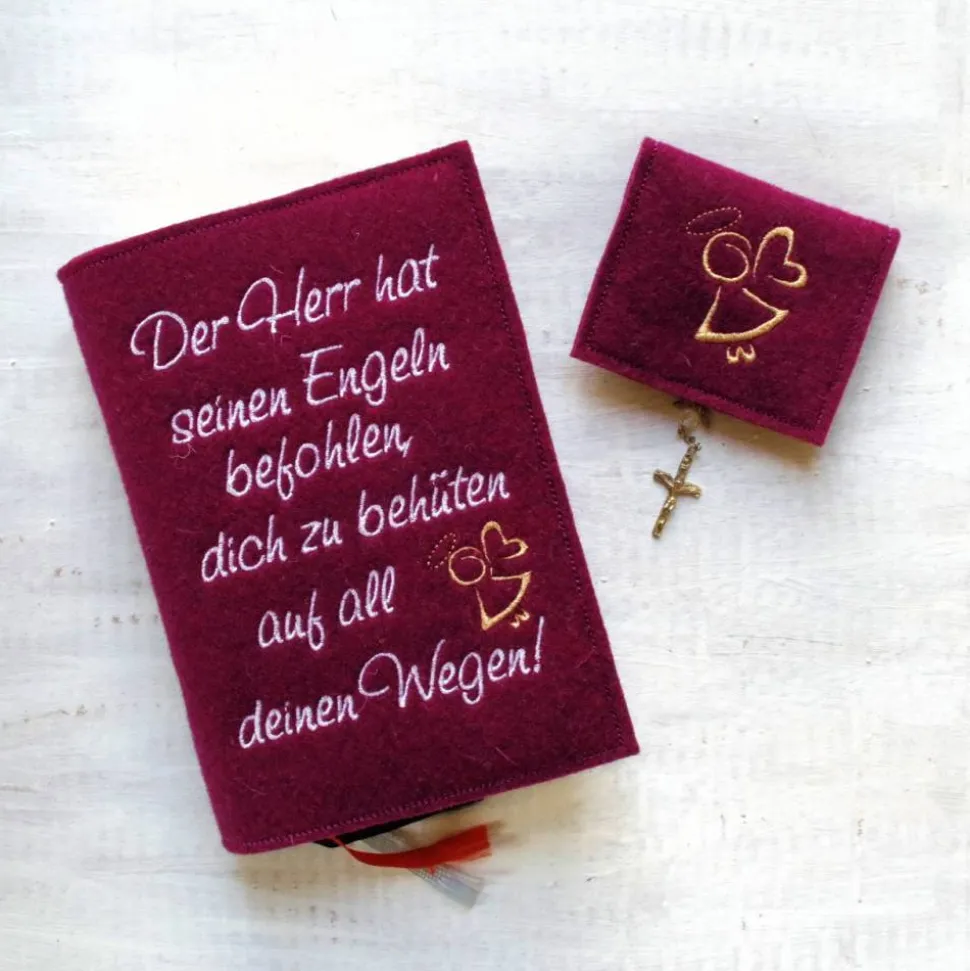 Der Herr hat
seinen Engeln
befohlen,
dich zu behüten
auf all
deinen Wegen!